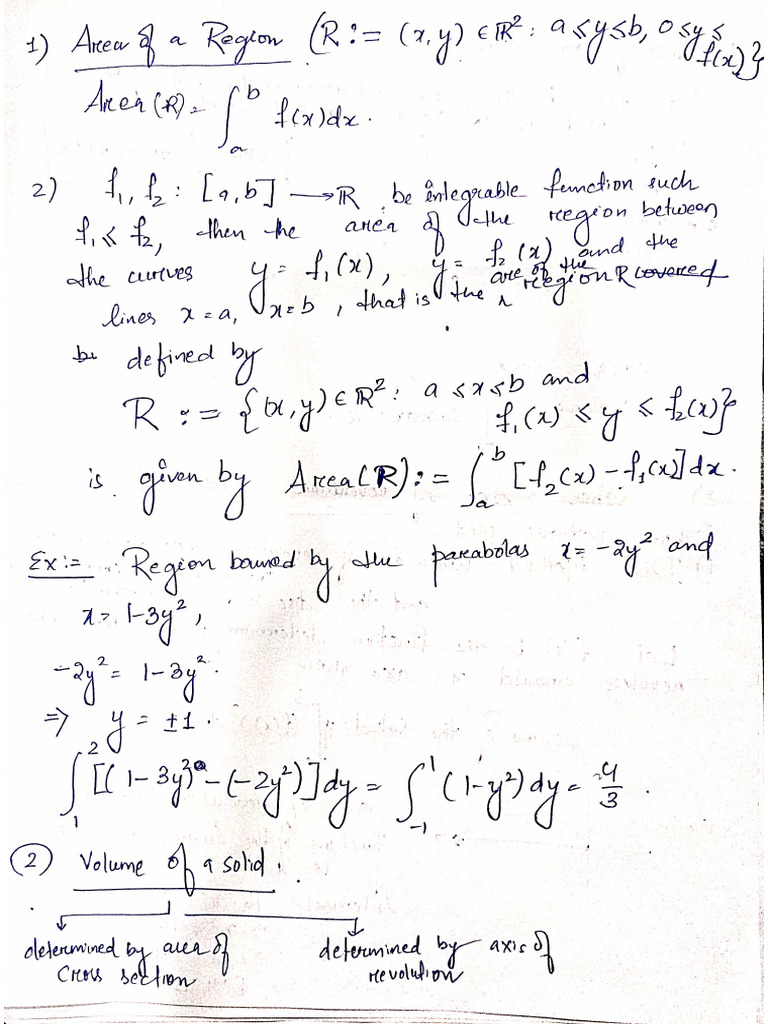 1) Area of a Region (R := (x, y) ∈ ℝ² : a ≤ y ≤ b, 0 ≤ y ≤ f(x)}
Area (R) = ∫_a^b f(x) dx.
2) f₁, f₂ : [a, b] → ℝ be integrable function such
f₁ ≤ f₂, then the area of the region between
the curves y = f₁(x), y = f₂(x) and the
lines x = a, x = b, that is the are of the region R covered
be defined by
R := {(x, y) ∈ ℝ² : a ≤ x ≤ b and
f₁(x) ≤ y ≤ f₂(x)}
is given by Area(R) := ∫_a^b [f₂(x) − f₁(x)] dx.
Ex := Region bouned by the parabolas x = −2y² and
x = 1−3y²,
−2y² = 1−3y².
⇒ y = ±1.
∫_1^2 [(1−3y²) − (−2y²)] dy = ∫_{−1}^1 (1−y²) dy = 4/3.
(2) Volume of a solid.
determined by area of
Cross section
determined by axis of
revolution